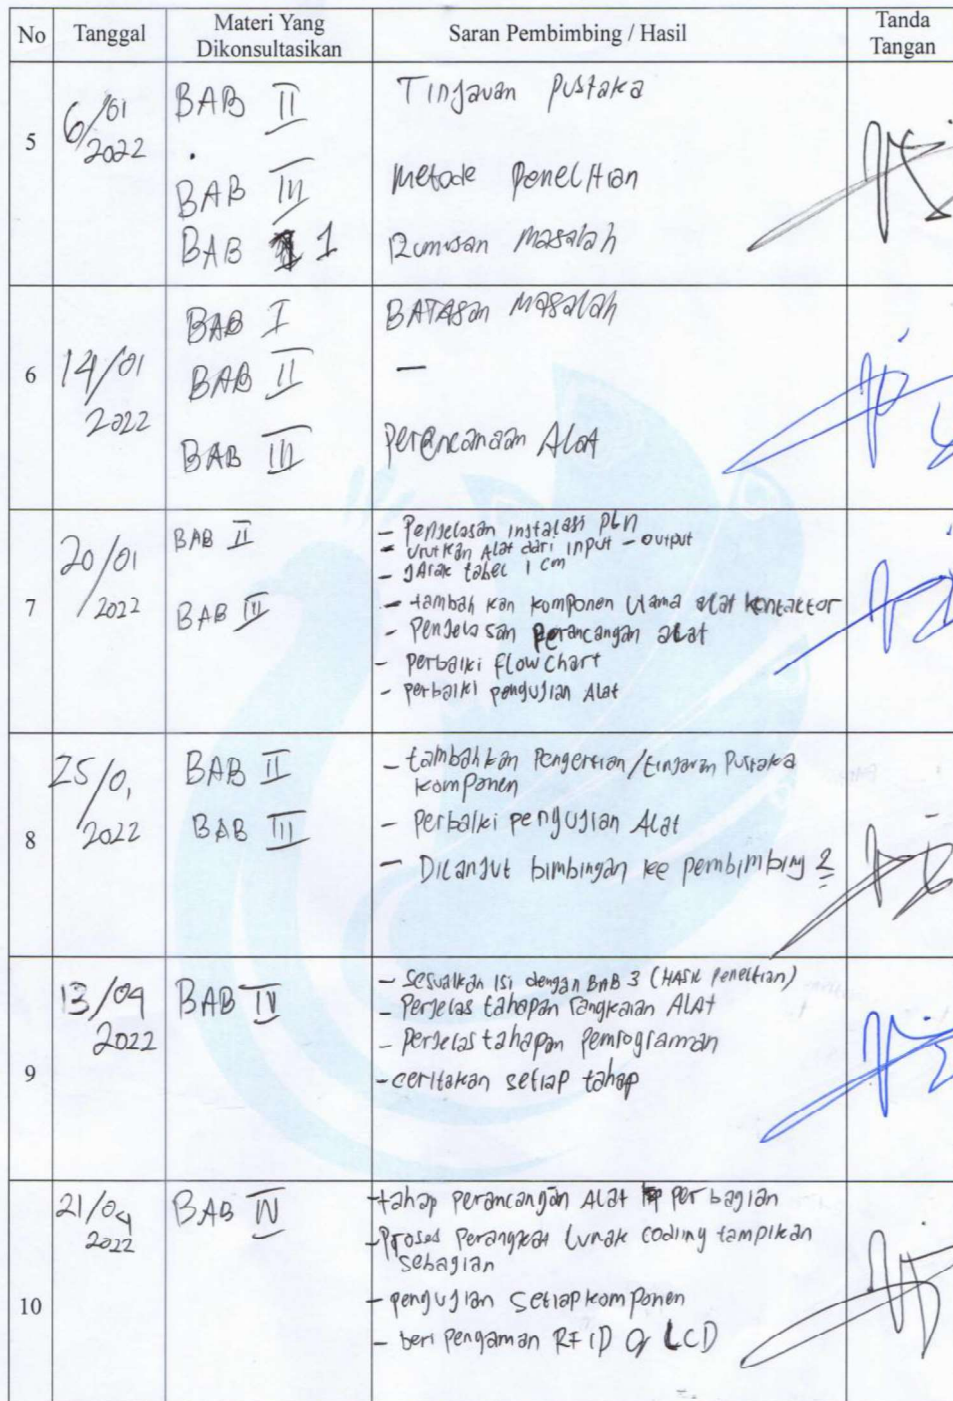 No Tanggal Materi Yang Dikonsultasikan Saran Pembimbing / Hasil Tanda Tangan
5 6/01 2022
BAB II Tinjauan Pustaka
BAB III Metode Penelitian
BAB 1 Rumusan Masalah
6 14/01 2022
BAB I BATASan Masalah
BAB II —
BAB III Perencanaan Alat
7 20/01 2022
BAB II - Penjelasan instalasi PLN
- Urutkan Alat dari input - output
- Jarak tabel 1 cm
BAB III - tambah kan komponen Utama alat kontaktor
- Penjelasan Perancangan alat
- Perbaiki flowchart
- perbaiki pengujian Alat
8 25/01 2022
BAB II - tambahkan Pengertian/tinjauan Pustaka
komponen
BAB III - Perbaiki pengujian Alat
- Dilanjut bimbingan ke pembimbing 2
9 13/04 2022
BAB IV - Sesuaikan isi dengan BAB 3 (HASIL Penelitian)
- Perjelas tahapan rangkaian ALAT
- Perjelas tahapan Pemrograman
- ceritakan setiap tahap
10 21/04 2022
BAB IV - tahap perancangan Alat per bagian
- Proses Perangkat lunak coding tampilkan
sebagian
- pengujian setiap komponen
- beri pengaman RFID & LCD